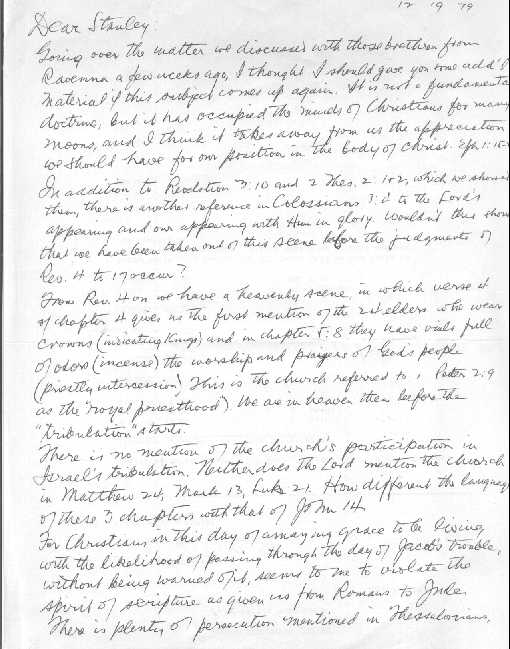 12 19 79
Dear Stanley:
Going over the matter we discussed with those brethren from
Ravenna a few weeks ago, I thought I should give you some add'l
material if this subject comes up again. It is not a fundamental
doctrine, but it has occupied the minds of Christians for many
moons, and I think it takes away from us the appreciation
we should have for our position in the body of Christ. Eph 1:15-
In addition to Revelation 3:10 and 2 Thes. 2 1+2, which we showed
them, there is another reference in Colossians 3: to the Lord's
appearing and our appearing with Him in glory. Wouldn't this show
that we have been taken out of this scene before the judgments of
Rev. 4 to 17 occur?
From Rev. 4 on we have a heavenly scene, in which verse 4
of chapter 4 gives us the first mention of the 24 elders who wear
crowns (indicating Kings) and in chapter 5:8 they have vials full
of odors (incense) the worship and prayers of God's people
(priestly intercession). This is the church referred to 1 Peter 2:9
as the "royal priesthood") We are in heaven then before the
"tribulation" starts.
There is no mention of the church's participation in
Israel's tribulation. Neither does the Lord mention the church
in Matthew 24, Mark 13, Luke 21. How different the language
of these 3 chapters with that of John 14.
For Christians in this day of amazing grace to be living
with the likelihood of passing through the day of Jacob's trouble,
without being warned of it, seems to me to violate the
spirit of scripture as given us from Romans to Jude.
There is plenty of persecution mentioned in Thessalonians,